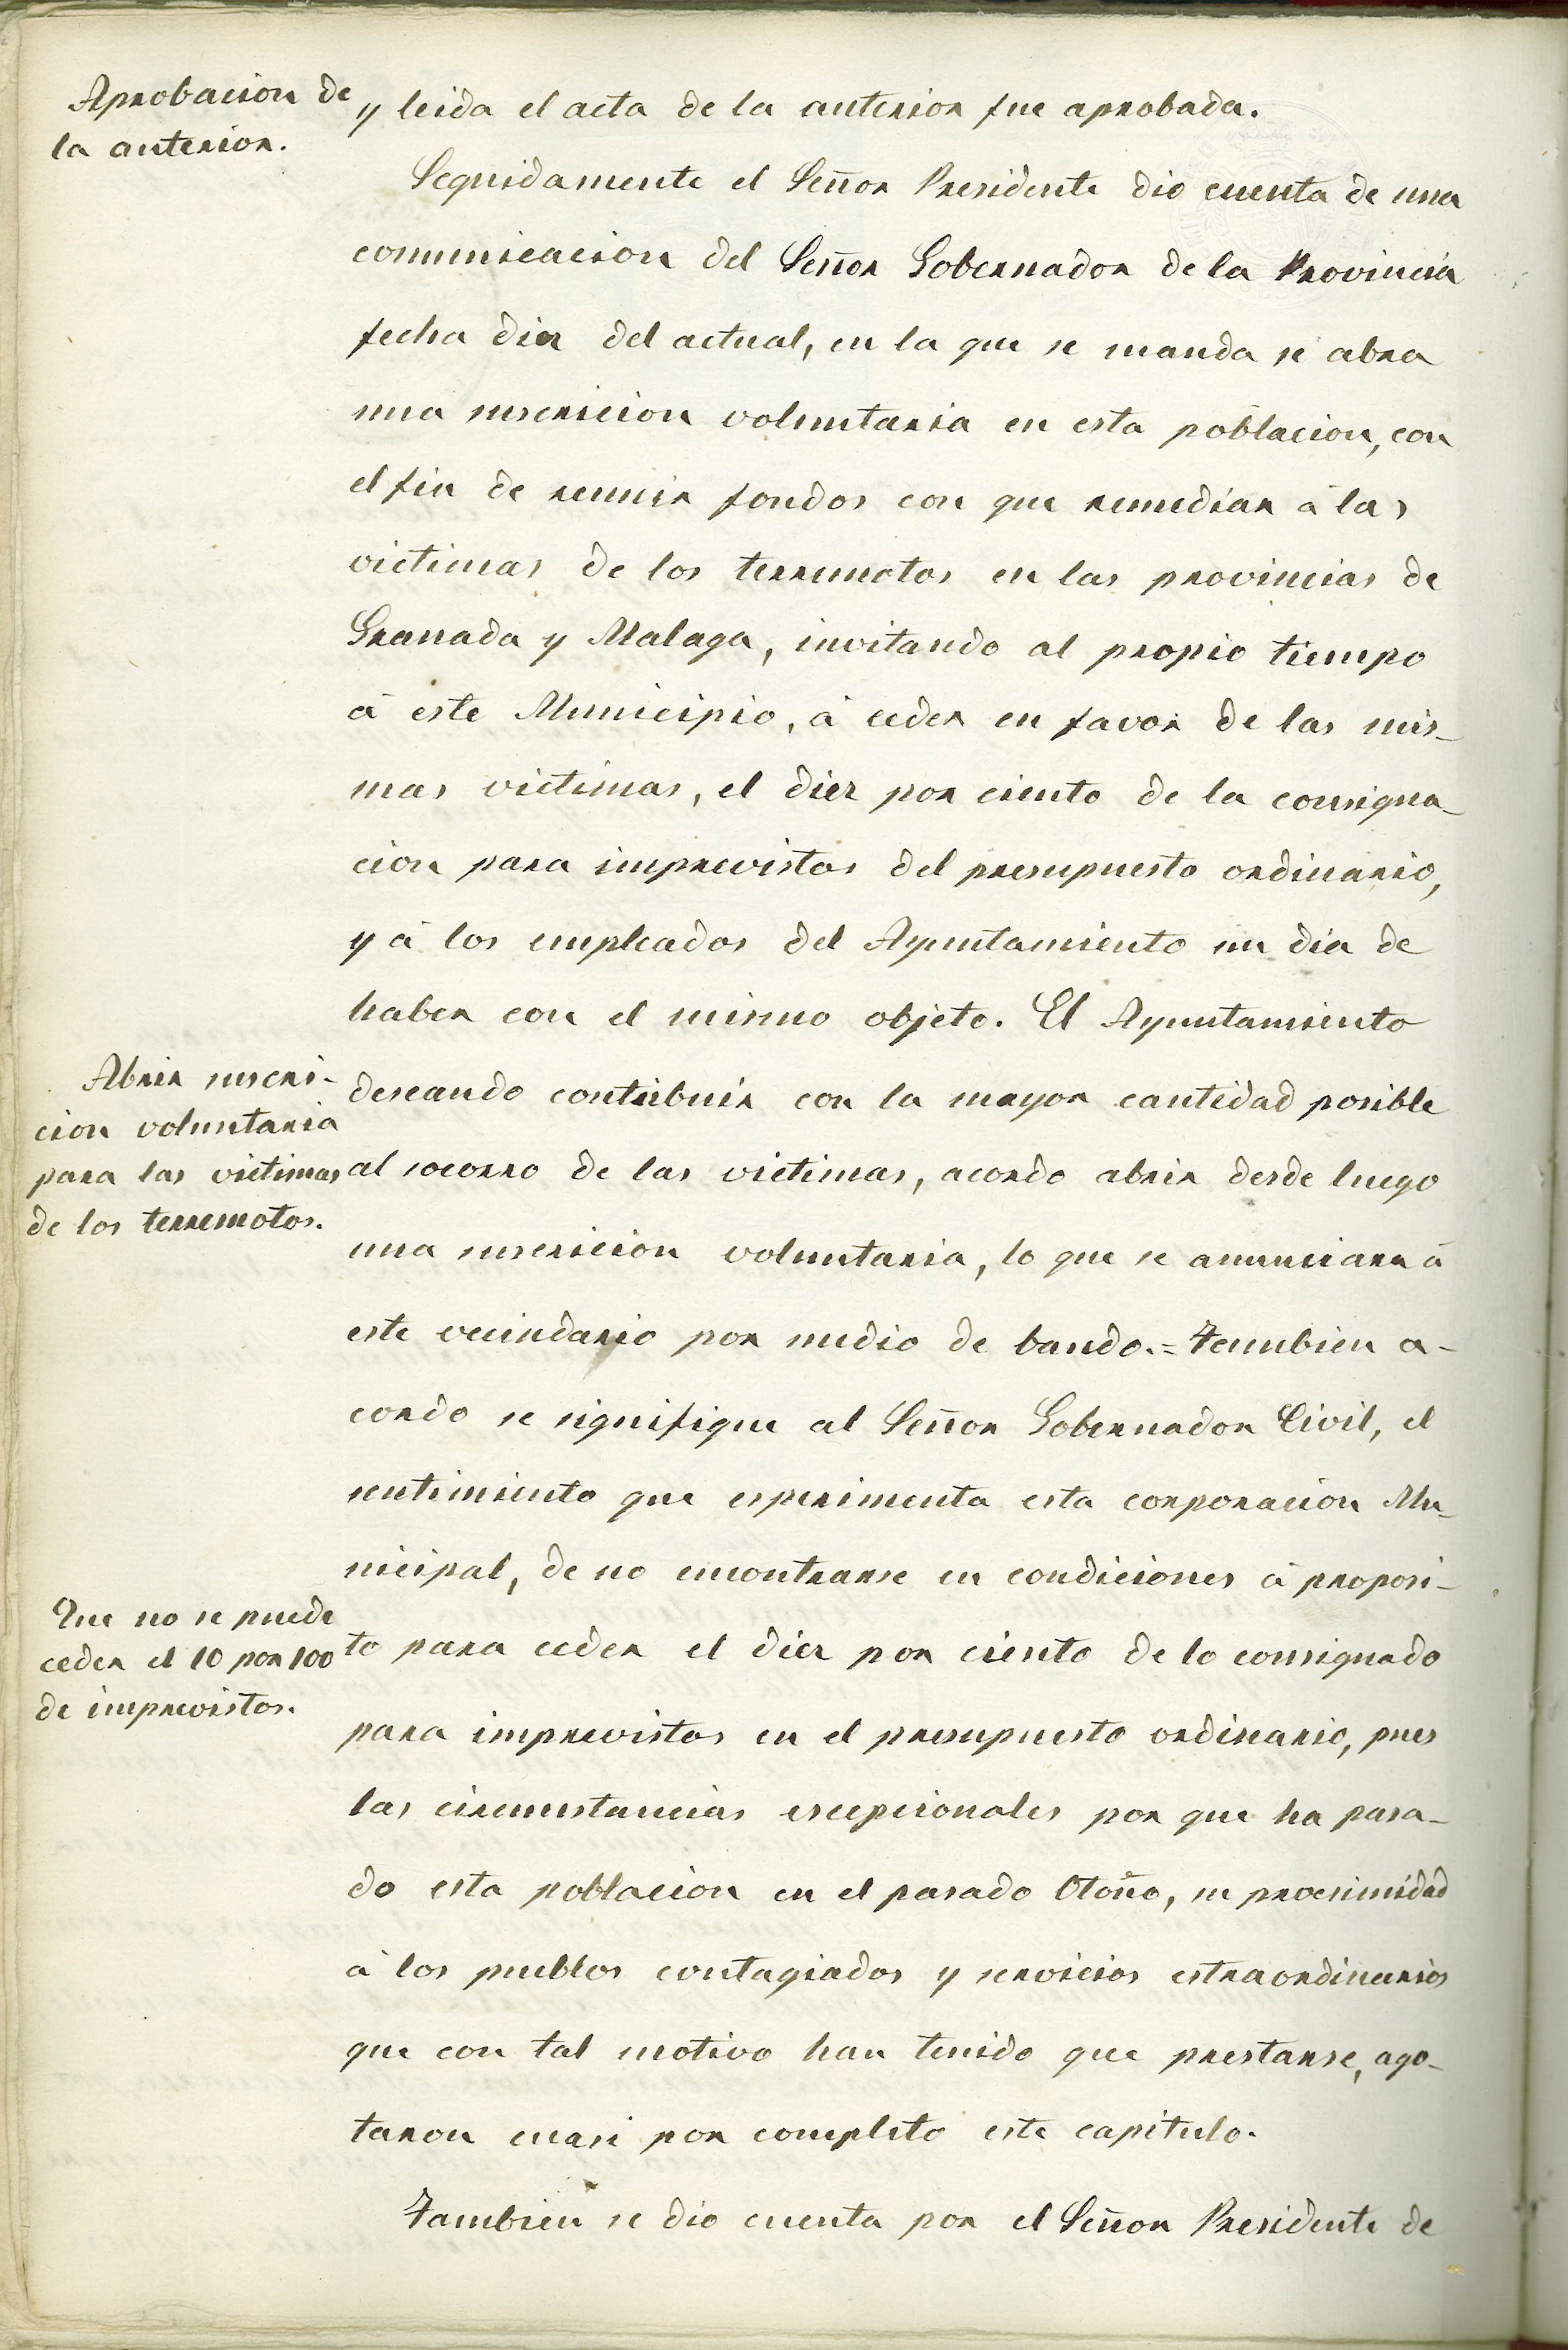 Aprobacion de
la anterior.
y leida el acta de la anterior fue aprobada.
Seguidamente el Señor Presidente dio cuenta de una
comunicacion del Señor Gobernador de la Provincia
fecha diez del actual, en la que se manda se abra
una suscricion voluntaria en esta poblacion, con
el fin de reunir fondos con que remediar á las
victimas de los terremotos en las provincias de
Granada y Malaga, invitando al propio tiempo
á este Municipio, á ceder en favor de las mis-
mas victimas, el diez por ciento de la consigna-
cion para imprevistos del presupuesto ordinario,
y á los empleados del Ayuntamiento un dia de
haber con el mismo objeto. El Ayuntamiento
Abrir suscri-
cion voluntaria
para las victimas
de los terremotos.
deseando contribuir con la mayor cantidad posible
al socorro de las victimas, acordo abrir desde luego
una suscricion voluntaria, lo que se anunciara á
este vecindario por medio de bando.= Tambien a-
cordo se signifique al Señor Gobernador Civil, el
sentimiento que esperimenta esta corporacion Mu-
nicipal, de no encontrarse en condiciones á proposi-
Que no se puede
ceder el 10 por 100
de imprevistos.
to para ceder el diez por ciento de lo consignado
para imprevistos en el presupuesto ordinario, pues
las circunstancias escepcionales por que ha pasa-
do esta poblacion en el pasado Otoño, su procsimidad
á los pueblos contagiados y servicios estraordinarios
que con tal motivo han tenido que prestarse, ago-
taron cuasi por completo este capitulo.
Tambien se dio cuenta por el Señor Presidente de